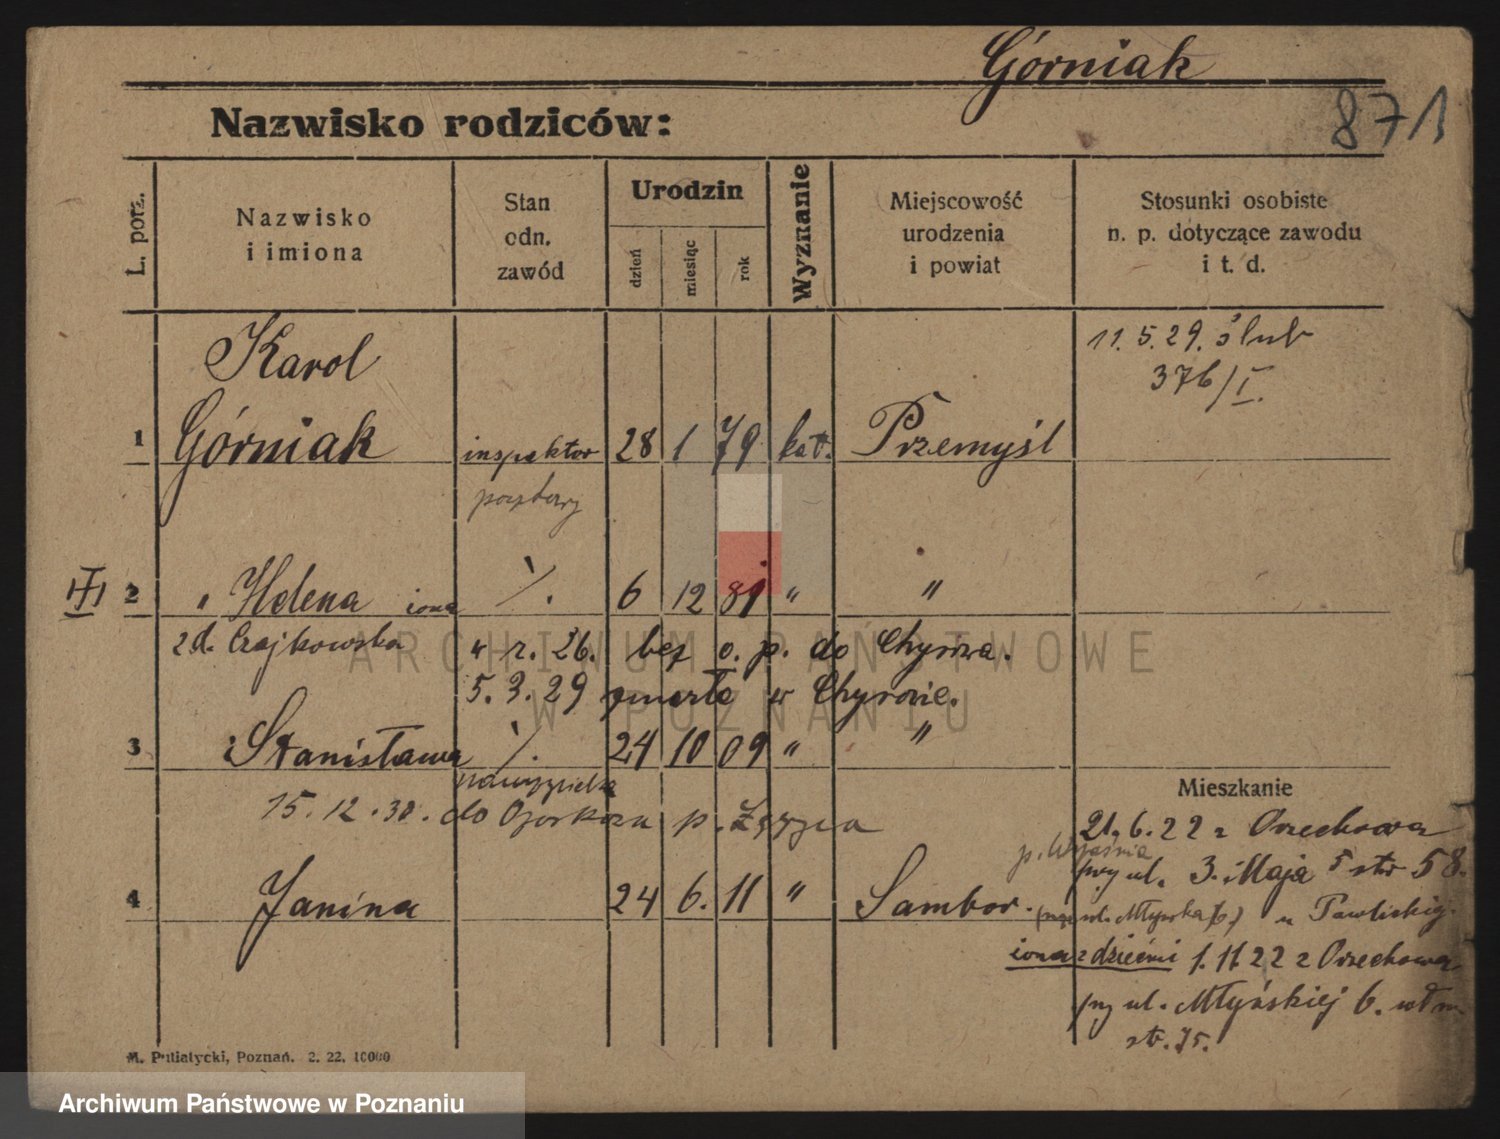 Górniak
871
Nazwisko rodziców:
L. porz.
Nazwisko
i imiona
Stan
odn.
zawód
Urodzin
dzień
miesiąc
rok
Wyznanie
Miejscowość
urodzenia
i powiat
Stosunki osobiste
n. p. dotyczące zawodu
i t. d.
11.5.29. ślub
376/I.
Karol
1 Górniak inspektor 28 1 79 kat. Przemyśl
pocztowy
III 2 " Helena żona ·/. 6 12 81 " "
z d. Czajkowska w r. 26. bez o. p. do Chyrowa.
5.3.29 zmarła w Chyrowie.
3 Stanisława ·/. 24 10 09 " "
nauczycielka
15.12.30. do
Mieszkanie
21.6.22 z Orzechowa
p. Września
przy ul. 3. Maja 5 str 58.
4 Janina 24 6. 11 " Sambor.
żona z dziećmi 1.11.22 z Orzechowa
przy ul. Młyńskiej 6.
str. 75.
M. Putiatycki, Poznań. 2. 22. 10000
ARCHIWUM PAŃSTWOWE
W POZNANIU
Archiwum Państwowe w Poznaniu